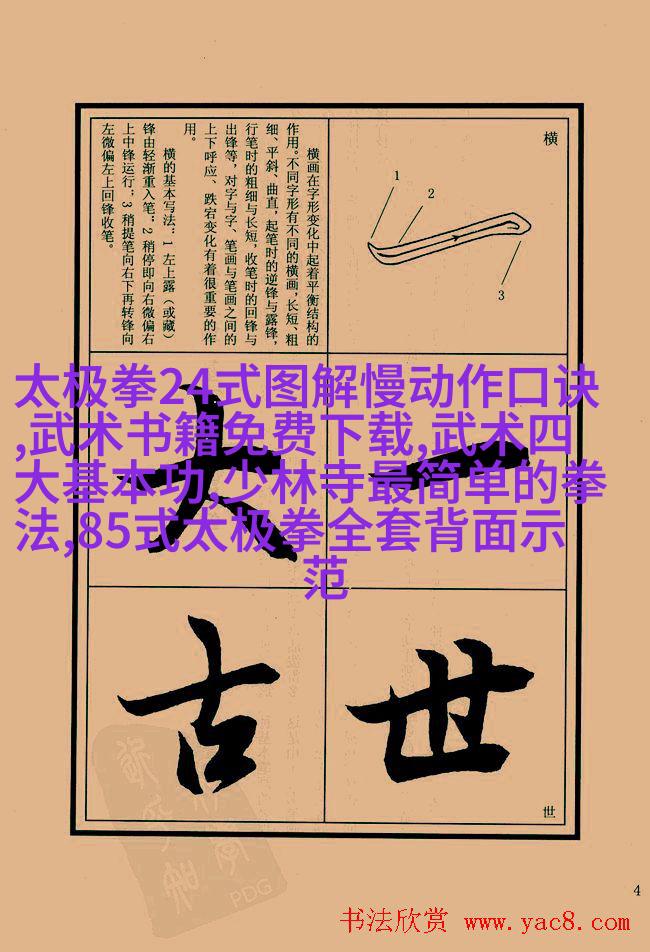 横
1
2
3
横画在字形变化中起着平衡结构的
作用。不同字形有不同的横画，长短、粗
细、平斜、曲直，起笔时的逆锋与露锋，
行笔时的粗细与长短，收笔时的回锋与
出锋等，对字与字、笔画与笔画之间的
上下呼应、跌宕变化有着很重要的作
用。
横的基本写法：1 左上露（或藏）
锋由轻渐重入笔；2 稍停即向右微偏右
上中锋运行；3 稍提笔向右下再转锋向
左微偏左上回锋收笔。
太极拳24式图解慢动作口诀
,武术书籍免费下载,武术四
大基本功,少林寺最简单的拳
法,85式太极拳全套背面示
范
一
大
世
古
世
PDG
4
书法欣赏 www.yac8.com